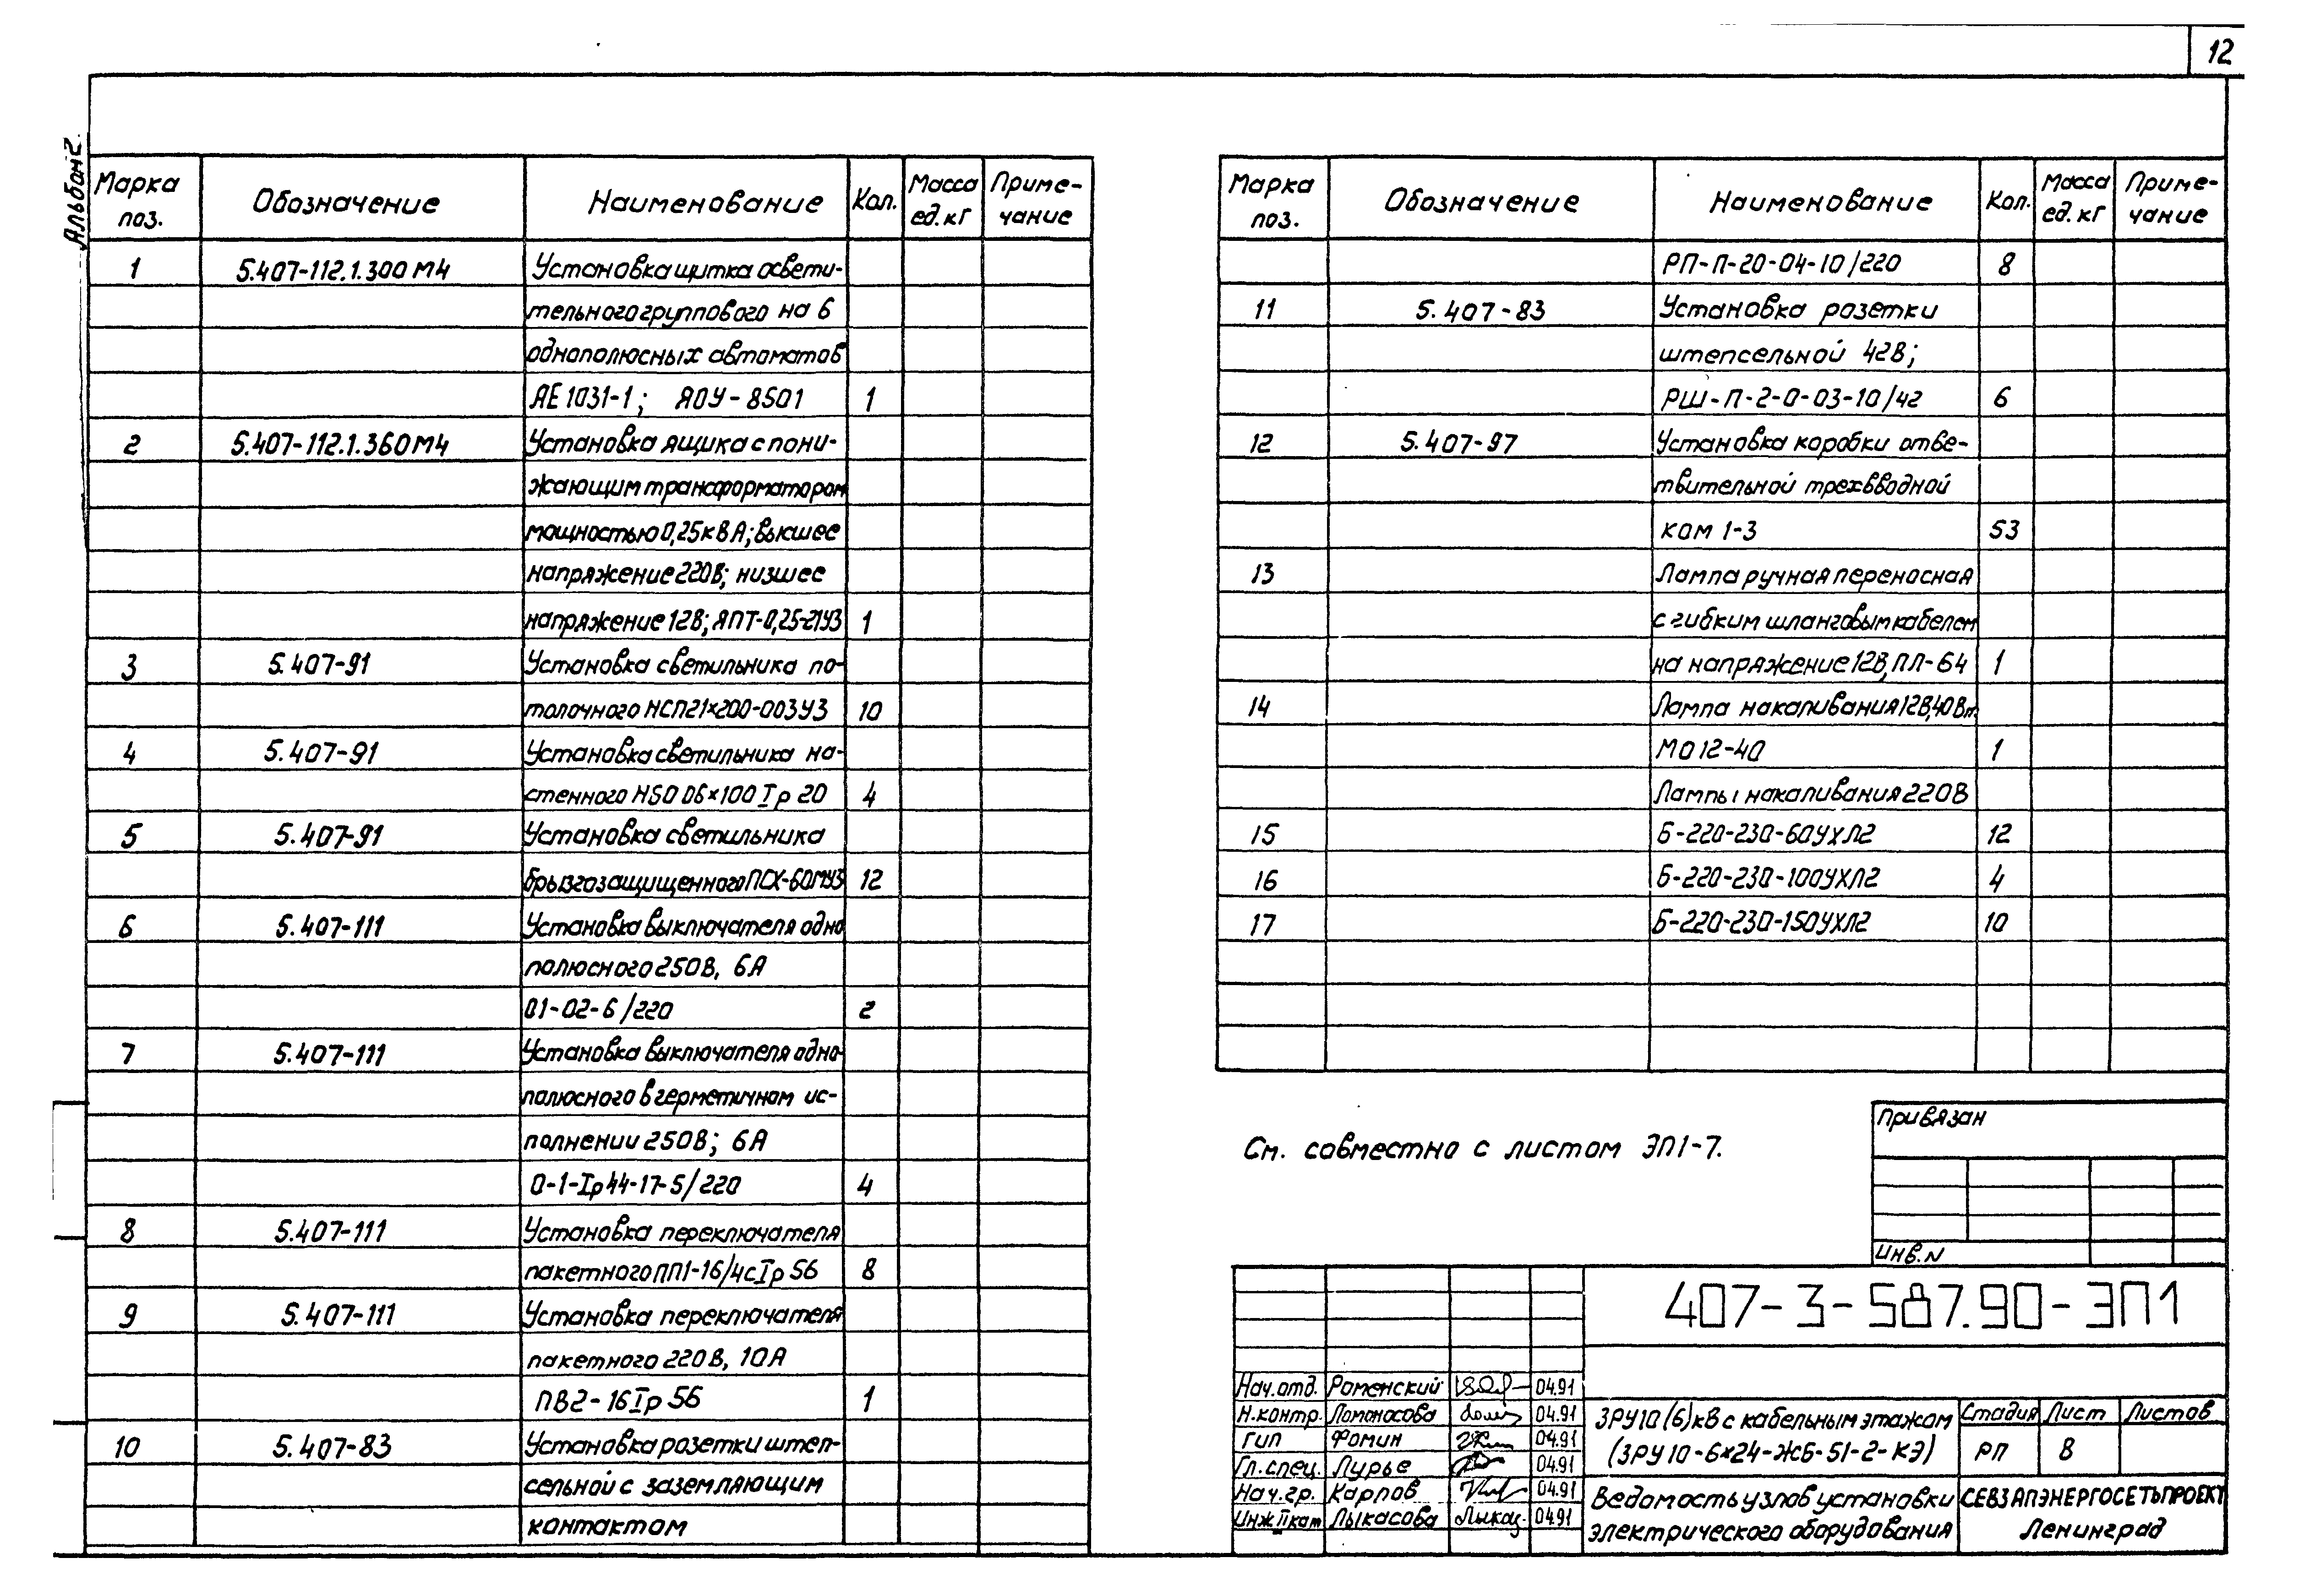 12
Альбом 2.
Марка поз. Обозначение Наименование Кол. Масса ед. кг Приме-чание
1 5.407-112.1.300 М4 Установка щитка освети-
тельного группового на 6
однополюсных автоматов
АЕ 1031-1; ЯОУ-8501 1
2 5.407-112.1.360 М4 Установка ящика с пони-
жающим трансформатором
мощностью 0,25 кВА; высшее
напряжение 220В; низшее
напряжение 12В; ЯПТ-0,25-21У3 1
3 5.407-91 Установка светильника по-
толочного НСП21×200-003У3 10
4 5.407-91 Установка светильника на-
стенного НSО 06×100 Iр 20 4
5 5.407-91 Установка светильника
брызгозащищенного ПСХ-60МУ3 12
6 5.407-111 Установка выключателя одно
полюсного 250В, 6А
01-02-6/220 2
7 5.407-111 Установка выключателя одно-
полюсного в герметичном ис-
полнении 250В; 6А
0-1-Iр44-17-5/220 4
8 5.407-111 Установка переключателя
пакетного ПП1-16/4с Iр 56 8
9 5.407-111 Установка переключателя
пакетного 220В, 10А
ПВ2-16 Iр 56 1
10 5.407-83 Установка розетки штеп-
сельной с заземляющим
контактом
Марка поз. Обозначение Наименование Кол. Масса ед. кг Приме-чание
РП-П-20-04-10/220 8
11 5.407-83 Установка розетки
штепсельной 42В;
РШ-П-2-0-03-10/42 6
12 5.407-97 Установка коробки отве-
твительной трехвводной
КОМ 1-3 53
13 Лампа ручная переносная
с гибким шланговым кабелем
на напряжение 12В, ПЛ-64 1
14 Лампа накаливания 12В, 40Вт
МО 12-40 1
Лампы накаливания 220В
15 Б-220-230-60УХЛ2 12
16 Б-220-230-100УХЛ2 4
17 Б-220-230-150УХЛ2 10
См. совместно с листом ЭП1-7.
Привязан
Инв. N
407-3-587.90-ЭП1
Нач. отд. Роменский 04.91
Н. контр. Ломоносова 04.91
ГИП Фомин 04.91
Гл. спец. Лурье 04.91
Нач. гр. Карпов 04.91
Инж II кат Лыкасова 04.91
ЗРУ 10 (6) кВ с кабельным этажом
(ЗРУ 10-6×24-ЖБ-51-2-КЭ)
Стадия Лист Листов
РП 8
Ведомость узлов установки
электрического оборудования
СЕВЗАПЭНЕРГОСЕТЬПРОЕКТ
Ленинград